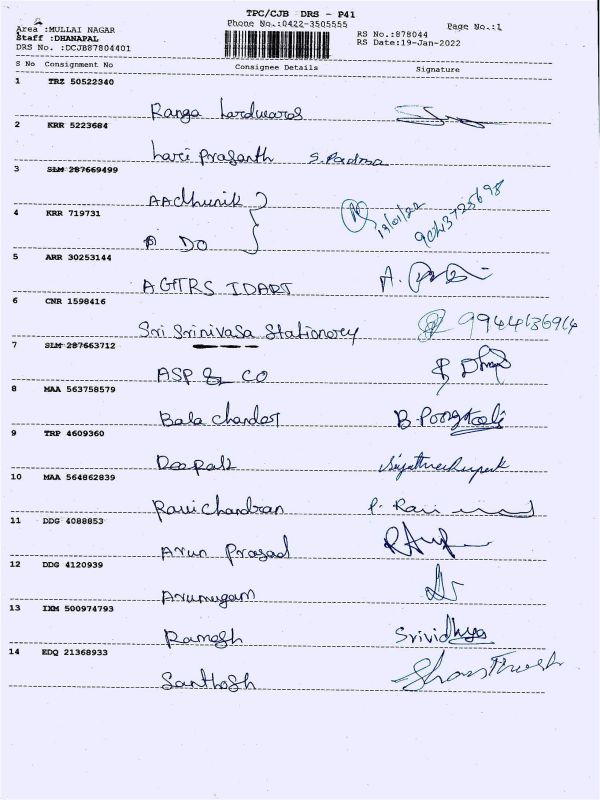 TPC/CJB DRS - P41
Area :MULLAI NAGAR Phone No.:0422-3505555 Page No.:1
Staff :DHANAPAL RS No.:878044
DRS No. :DCJB87804401 RS Date:19-Jan-2022
S No Consignment No Consignee Details Signature
1 TRZ 50522340
Ranga Hardwares
2 KRR 5223684
Hari Prasanth S. Padma
3 SLM 287669499
AAdhunik
4 KRR 719731 19/01/22
DO
5 ARR 30253144
A.
6 CNR 1598416
Sri Srinivasa Stationery 9944136914
7 SLM 287663712
ASP & CO
8 MAA 563758579
Bala chander
9 TRP 4609360
Deepak
10 MAA 564862839
Ravichandran P. Ravi
11 DDG 4088853
Arun Prasad
12 DDG 4120939
Arumugam
13 IXM 500974793
Ramesh Srividhya
14 EDQ 21368933
Santhosh